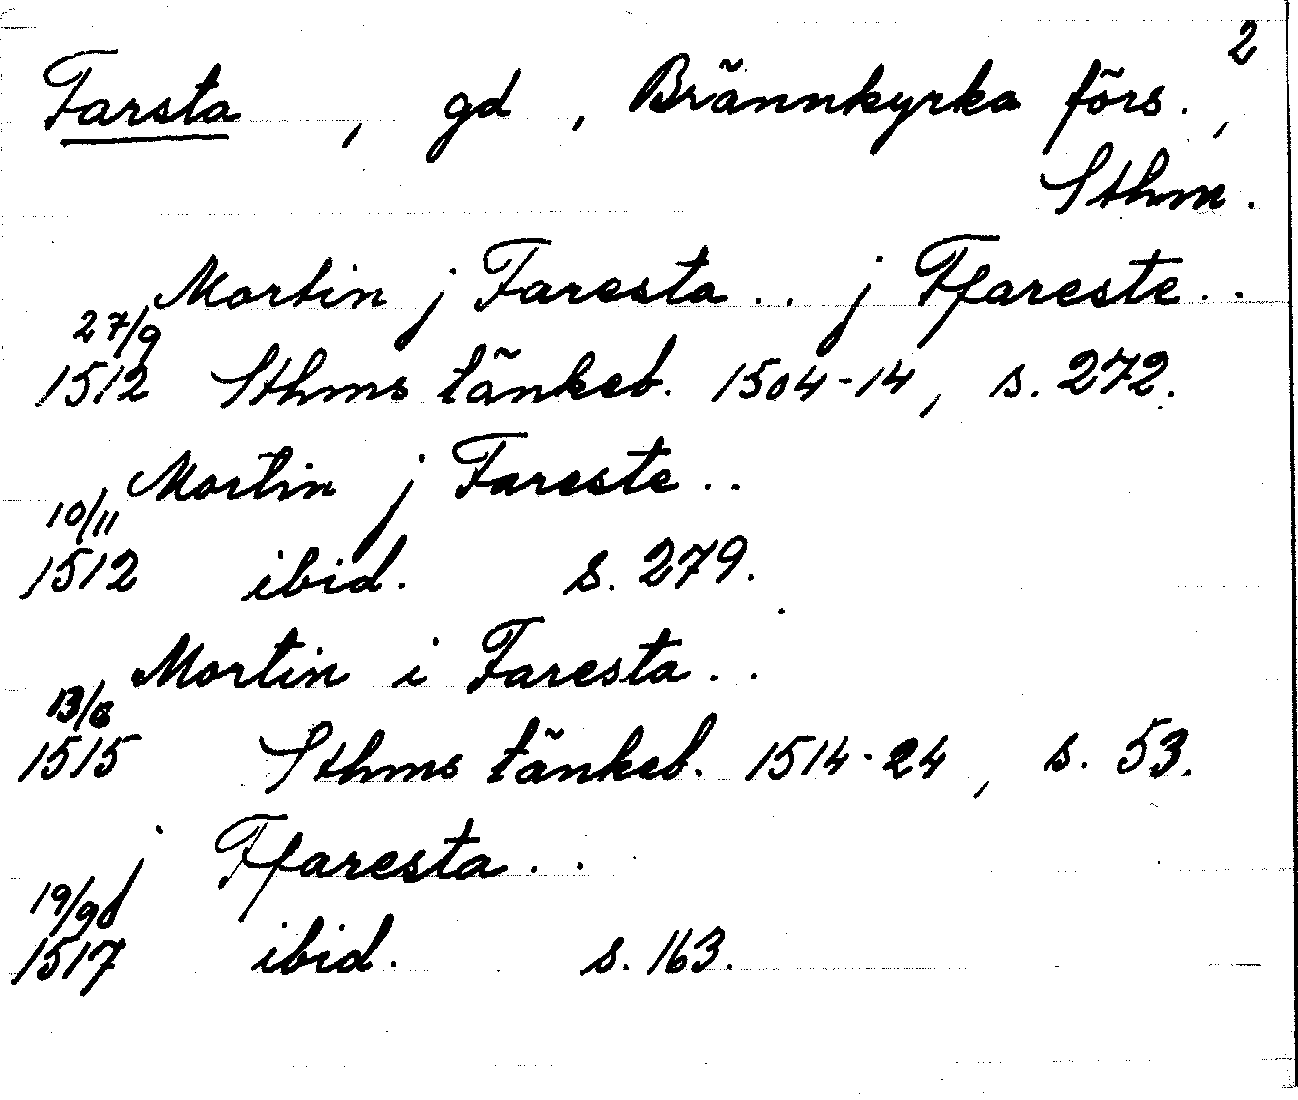 2
Farsta, gd, Brännkyrka förs.,
Sthm.
Mortin j Faresta .. j Ffareste ..
27/9
1512 Sthms tänkeb. 1504-14, s. 272.
Mortin j Fareste ..
10/11
1512 ibid. s. 279.
Mortin i Faresta ..
13/8
1515 Sthms tänkeb. 1514-24, s. 53.
j Ffaresta ..
19/9
1517 ibid. s. 163.